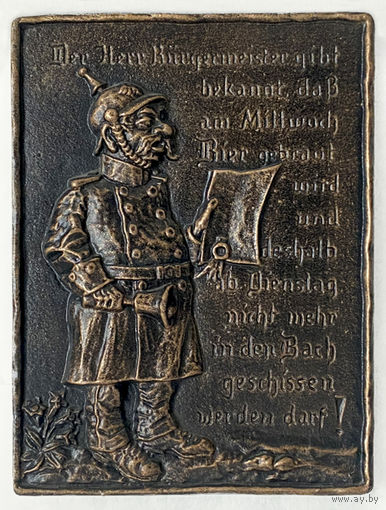 Der Herr Bürgermeister gibt
bekannt, daß
am Mittwoch
Bier gebraut
wird
und
deshalb
ab Dienstag
nicht mehr
in den Bach
geschissen
werden darf!
www.ay.by